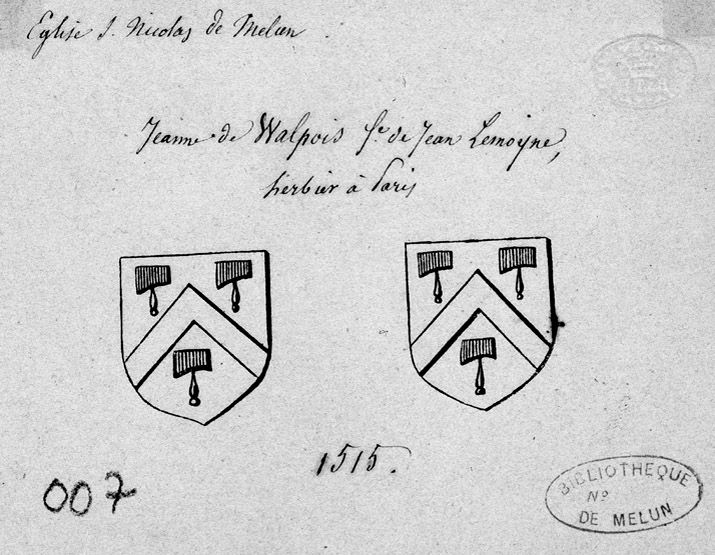 Eglise S. Nicolas de Melun.
Jeanne de Walpois fe. de Jean Lemoyne,
herbier à Paris
1515.
007
BIBLIOTHEQUE
No
DE MELUN